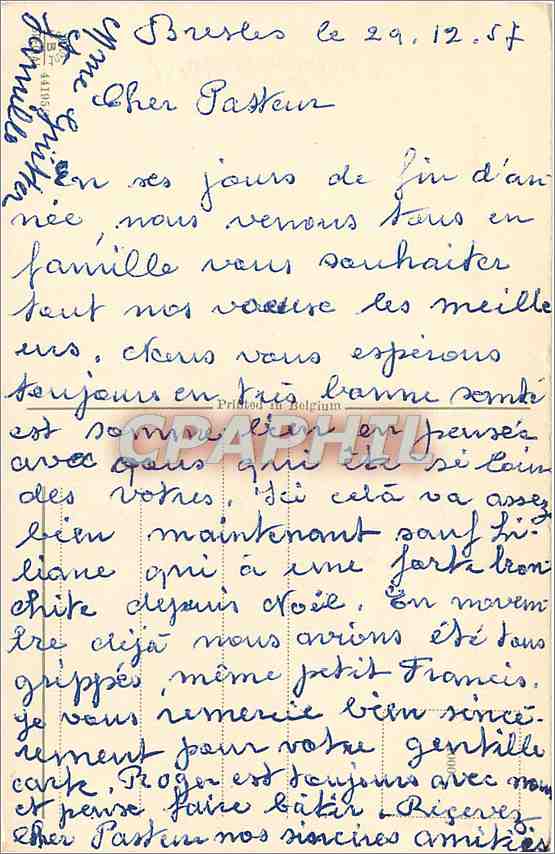 Bresles le 29.12.57
Cher Pasteur
En ses jours de fin d'an-
née, nous venons tous en
famille vous souhaiter
tout nos voeuse les meille
eurs. Nous vous espérons
toujours en très bonne santé
Printed in Belgium
est somme bien en pensée
CPAPHIL
avec vous qui ête si loin
des votres. Ici celà va assez
bien maintenant sauf Li-
liane qui à une forte bron
chite depuis Noël. En novem
bre déjà nous avions été tous
grippés, même petit Francis.
je vous remercie bien sincè-
rement pour votre gentille
carte. Roger est toujours avec nous
et pense faire bâtir. Reçevez
Cher Pasteur nos sincères amitiés
Mme
et
famille